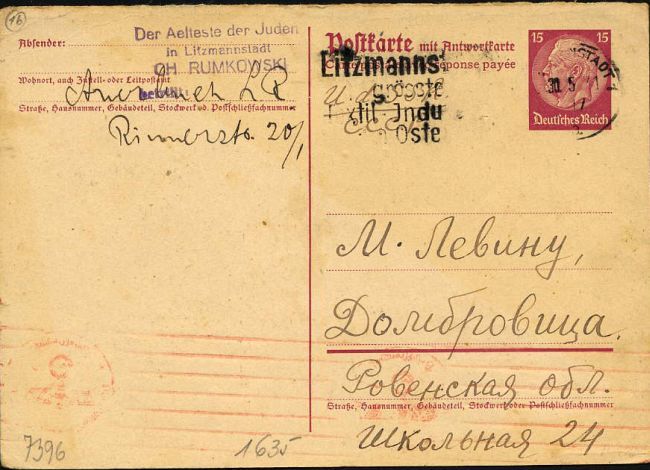 16
Absender:
Der Aelteste der Juden
in Litzmannstadt
CH. RUMKOWSKI
Wohnort, auch Zustell- oder Leitpostamt
Straße, Hausnummer, Gebäudeteil, Stockwerk od. Postschließfachnummer
20/1
Postkarte mit Antwortkarte
réponse payée
Litzmanns
grösste
til-Indu
Oste
15 15
30.5.
Deutsches Reich
М. Левину,
Домбровица
Ровенская обл.
Straße, Hausnummer, Gebäudeteil, Stockwerk oder Postschließfachnummer
Школьная 24
7396
1635